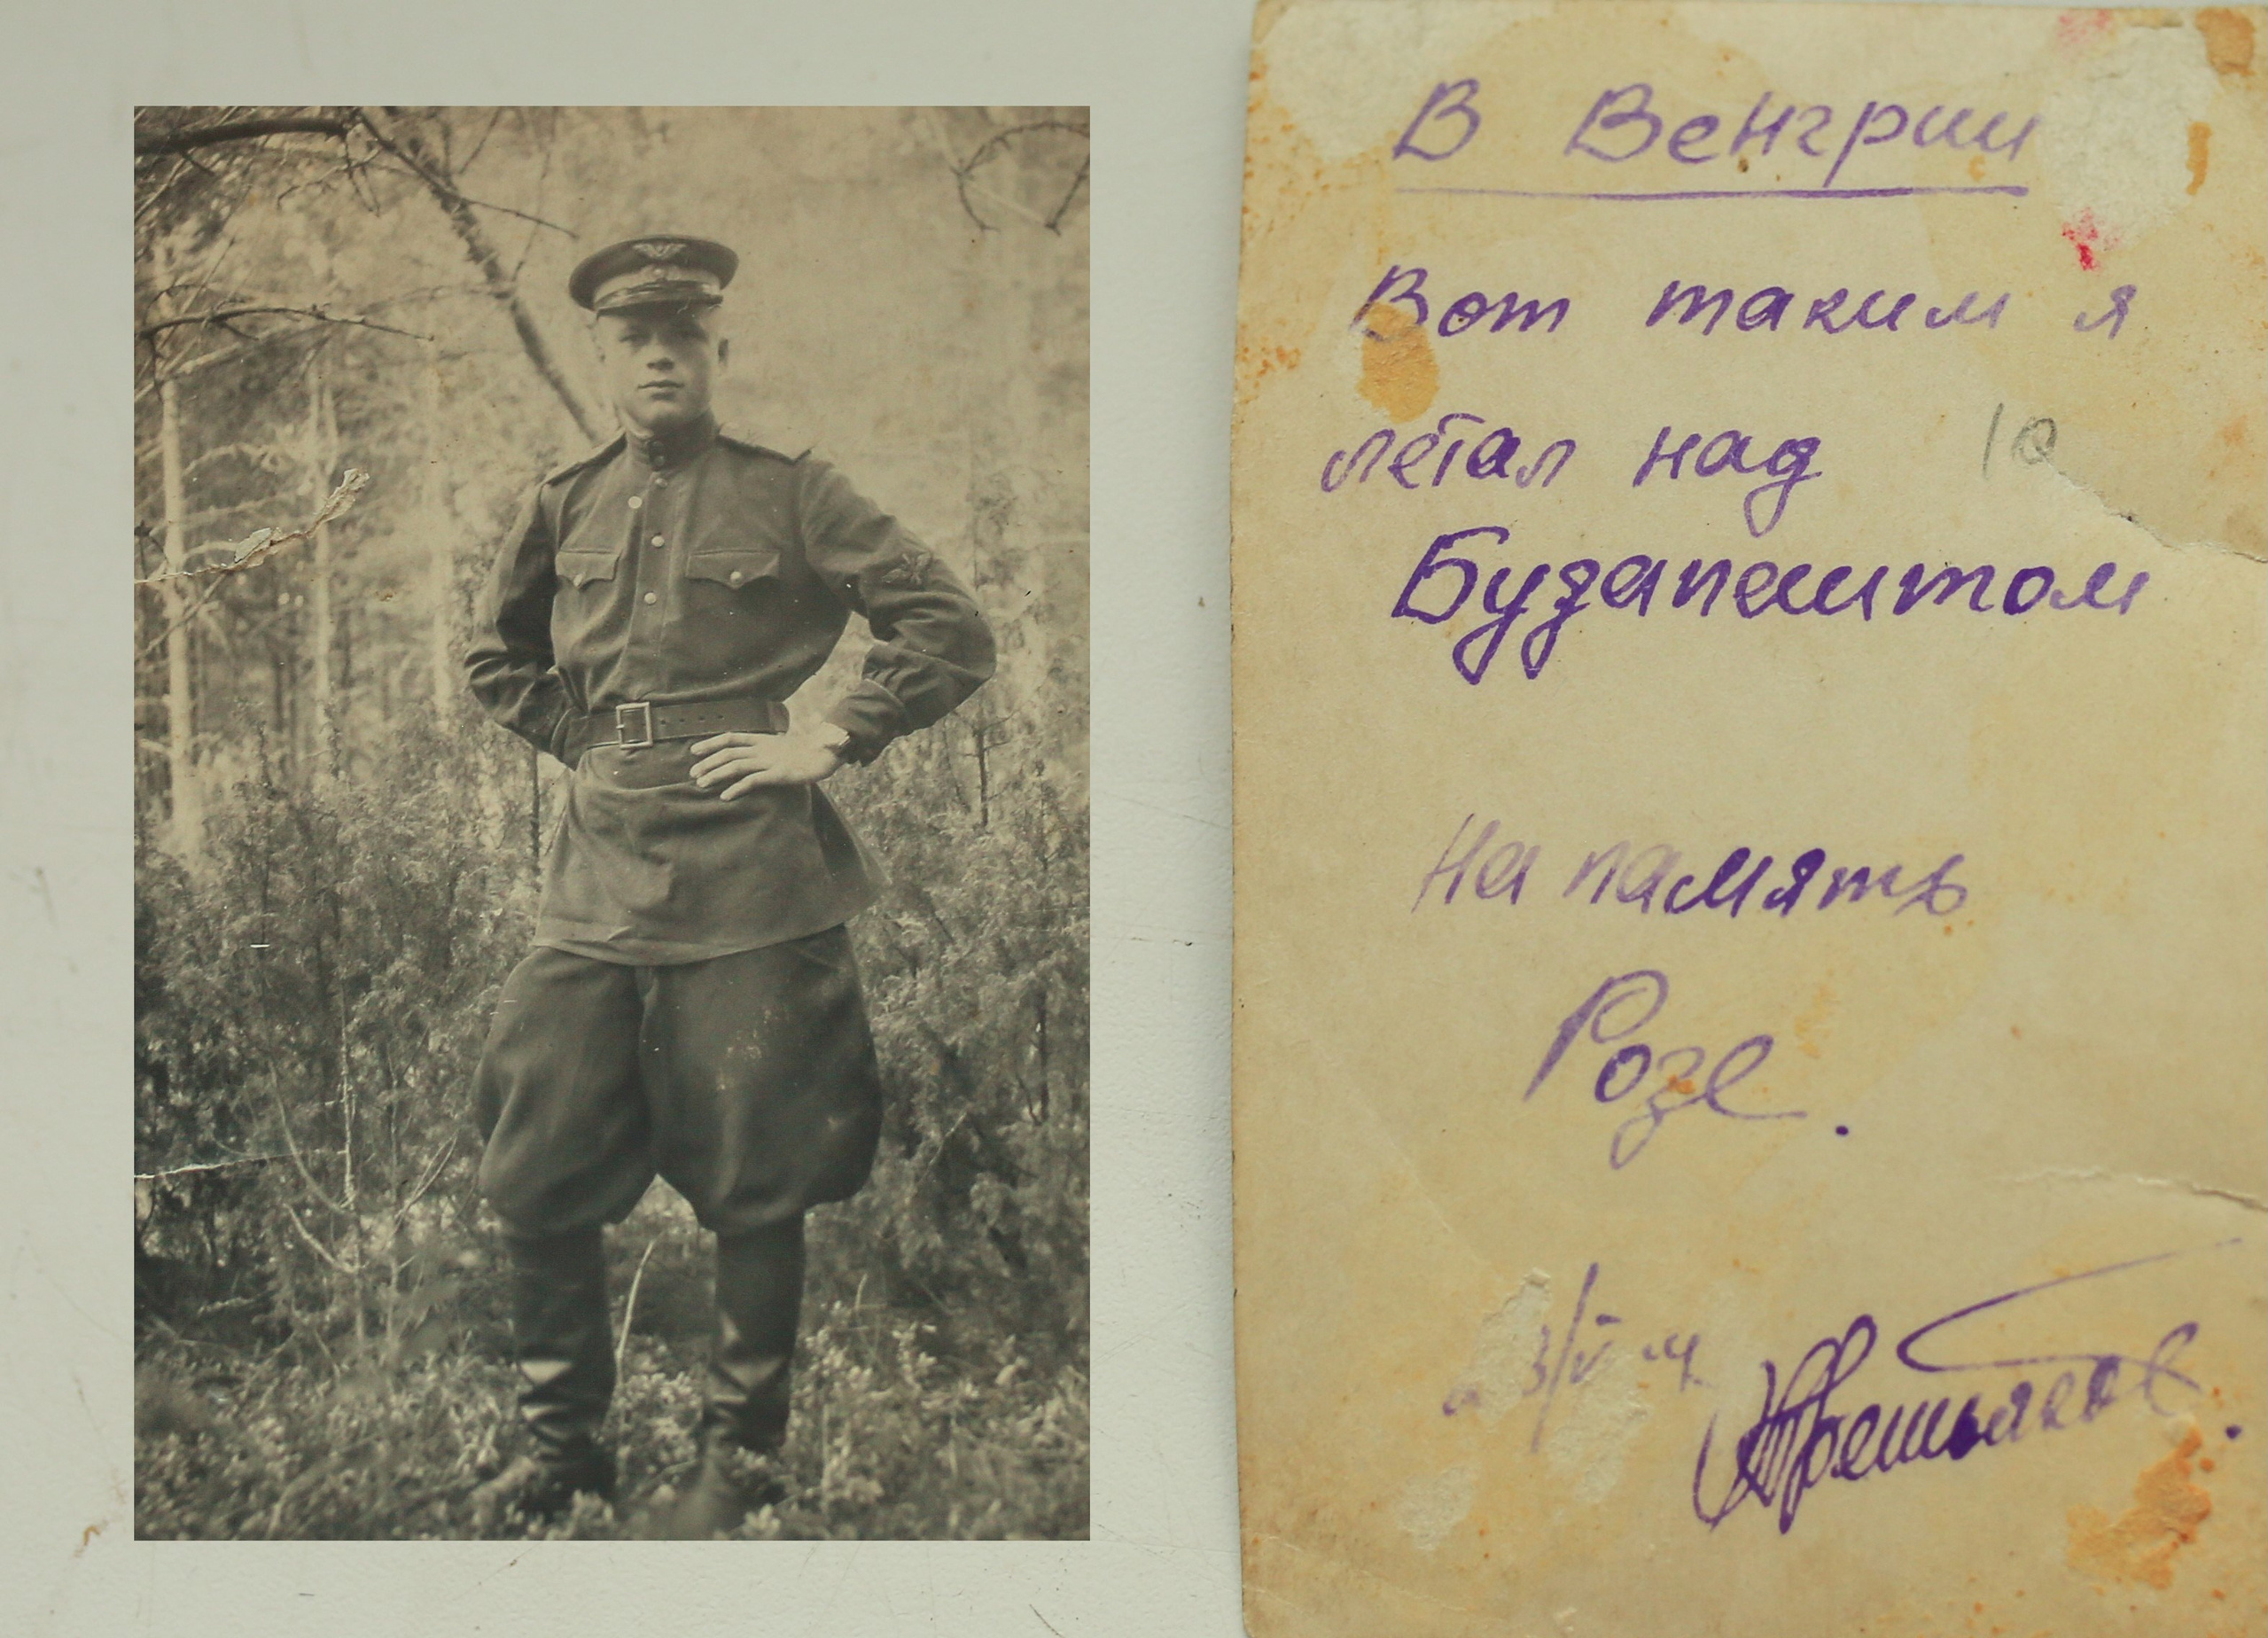 В Венгрии
Вот таким я
летал над 10
Будапештом
На память
Розе.
Третьяков.